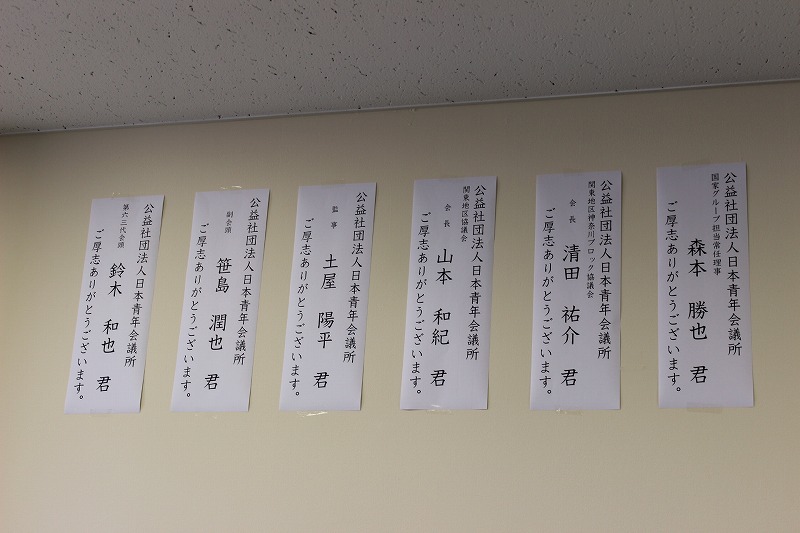 公益社団法人日本青年会議所
国家グループ担当常任理事
森本 勝也 君
ご厚志ありがとうございます。
公益社団法人日本青年会議所
関東地区神奈川ブロック協議会
会長 清田 祐介 君
ご厚志ありがとうございます。
公益社団法人日本青年会議所
関東地区協議会
会長 山本 和紀 君
ご厚志ありがとうございます。
公益社団法人日本青年会議所
監事 土屋 陽平 君
ご厚志ありがとうございます。
公益社団法人日本青年会議所
副会頭 笹島 潤也 君
ご厚志ありがとうございます。
公益社団法人日本青年会議所
第六三代会頭 鈴木 和也 君
ご厚志ありがとうございます。